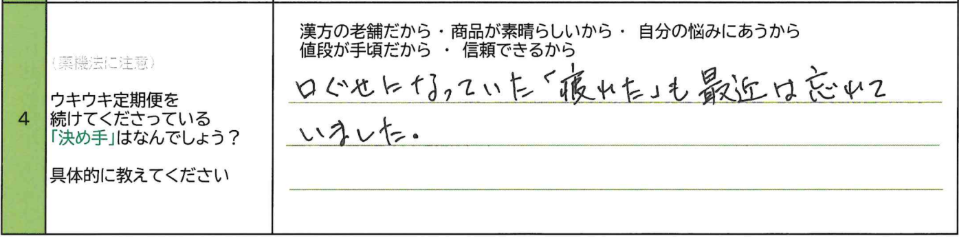 漢方の老舗だから・商品が素晴らしいから・ 自分の悩みにあうから
値段が手頃だから ・ 信頼できるから
(薬機法に注意)
口ぐせになっていた「疲れた」も最近は忘れて
いました。
4
ウキウキ定期便を
続けてくださっている
「決め手」はなんでしょう?
具体的に教えてください